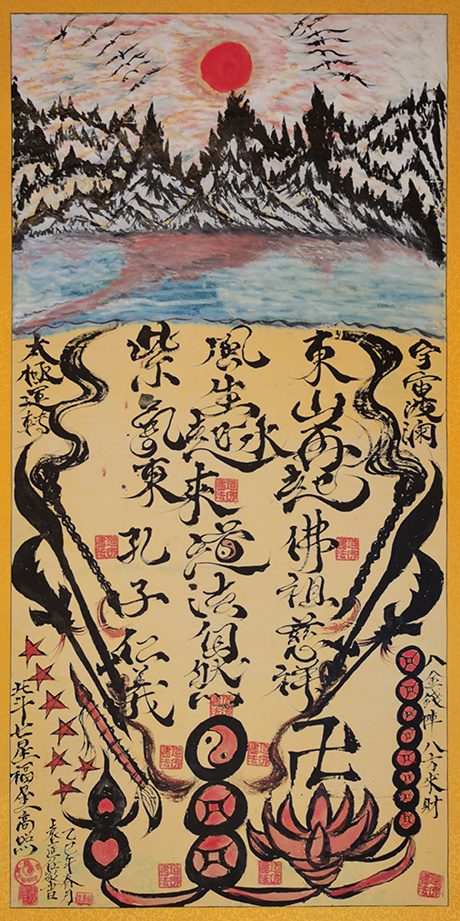 宇宙
東山再起佛祖慈祥
卍
風生水起来道法自然
紫氣東孔子仁義
太極運轉
八金錢陣八方来財
北斗七星福星高照
乙巳年春月